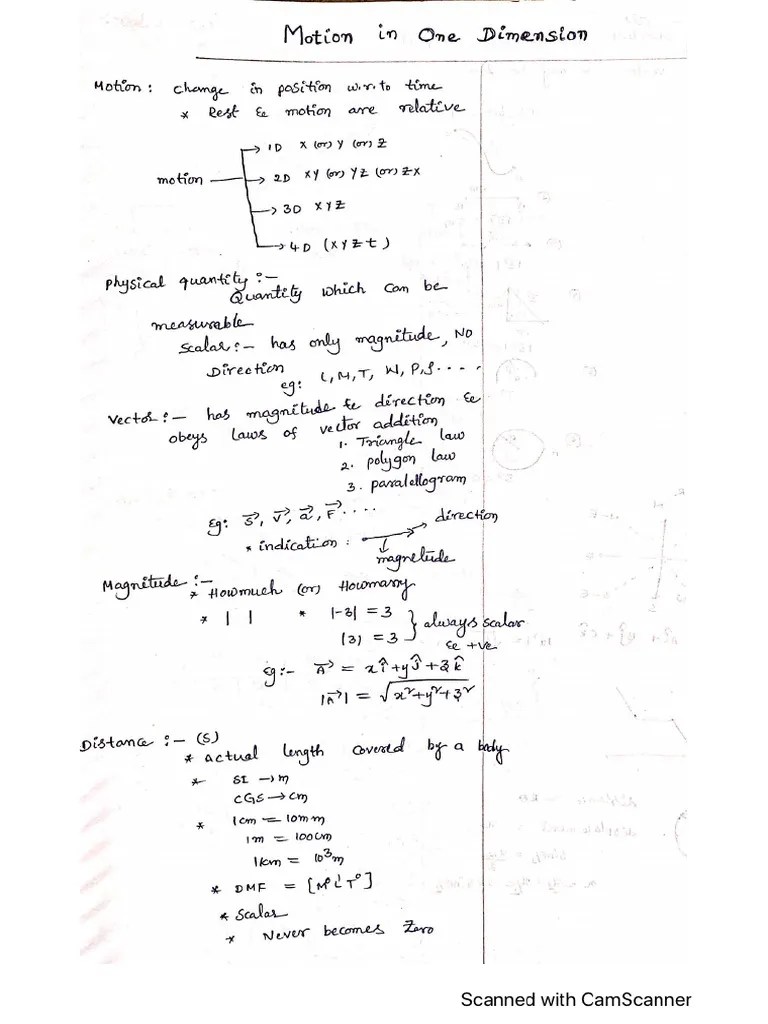 Motion in One Dimension
Motion: change in position w.r.to time
* Rest & motion are relative
motion
→ 1D X (or) Y (or) Z
→ 2D XY (or) YZ (or) ZX
→ 3D XYZ
→ 4D (XYZt)
Physical quantity :-
Quantity which can be
measurable
Scalar :- has only magnitude, NO
Direction
eg: L, M, T, W, P, S....
Vector :- has magnitude & direction &
obeys laws of vector addition
1. Triangle law
2. polygon law
3. parallellogram
Eg: S⃗, V⃗, a⃗, F⃗....
* indication : direction
magnetude
Magnitude :-
* Howmuch (or) Howmany
* | | * |-3| = 3
|3| = 3 } always scalar
& +ve
Eg:- A⃗ = xî+yĵ+zk̂
|A⃗| = √x²+y²+z²
Distance :- (S)
* Actual length covered by a body
* SI → m
CGS → cm
* 1cm = 10mm
1m = 100cm
1km = 10³m
* DMF = [M⁰L¹T⁰]
* Scalar
* Never becomes Zero
Scanned with CamScanner